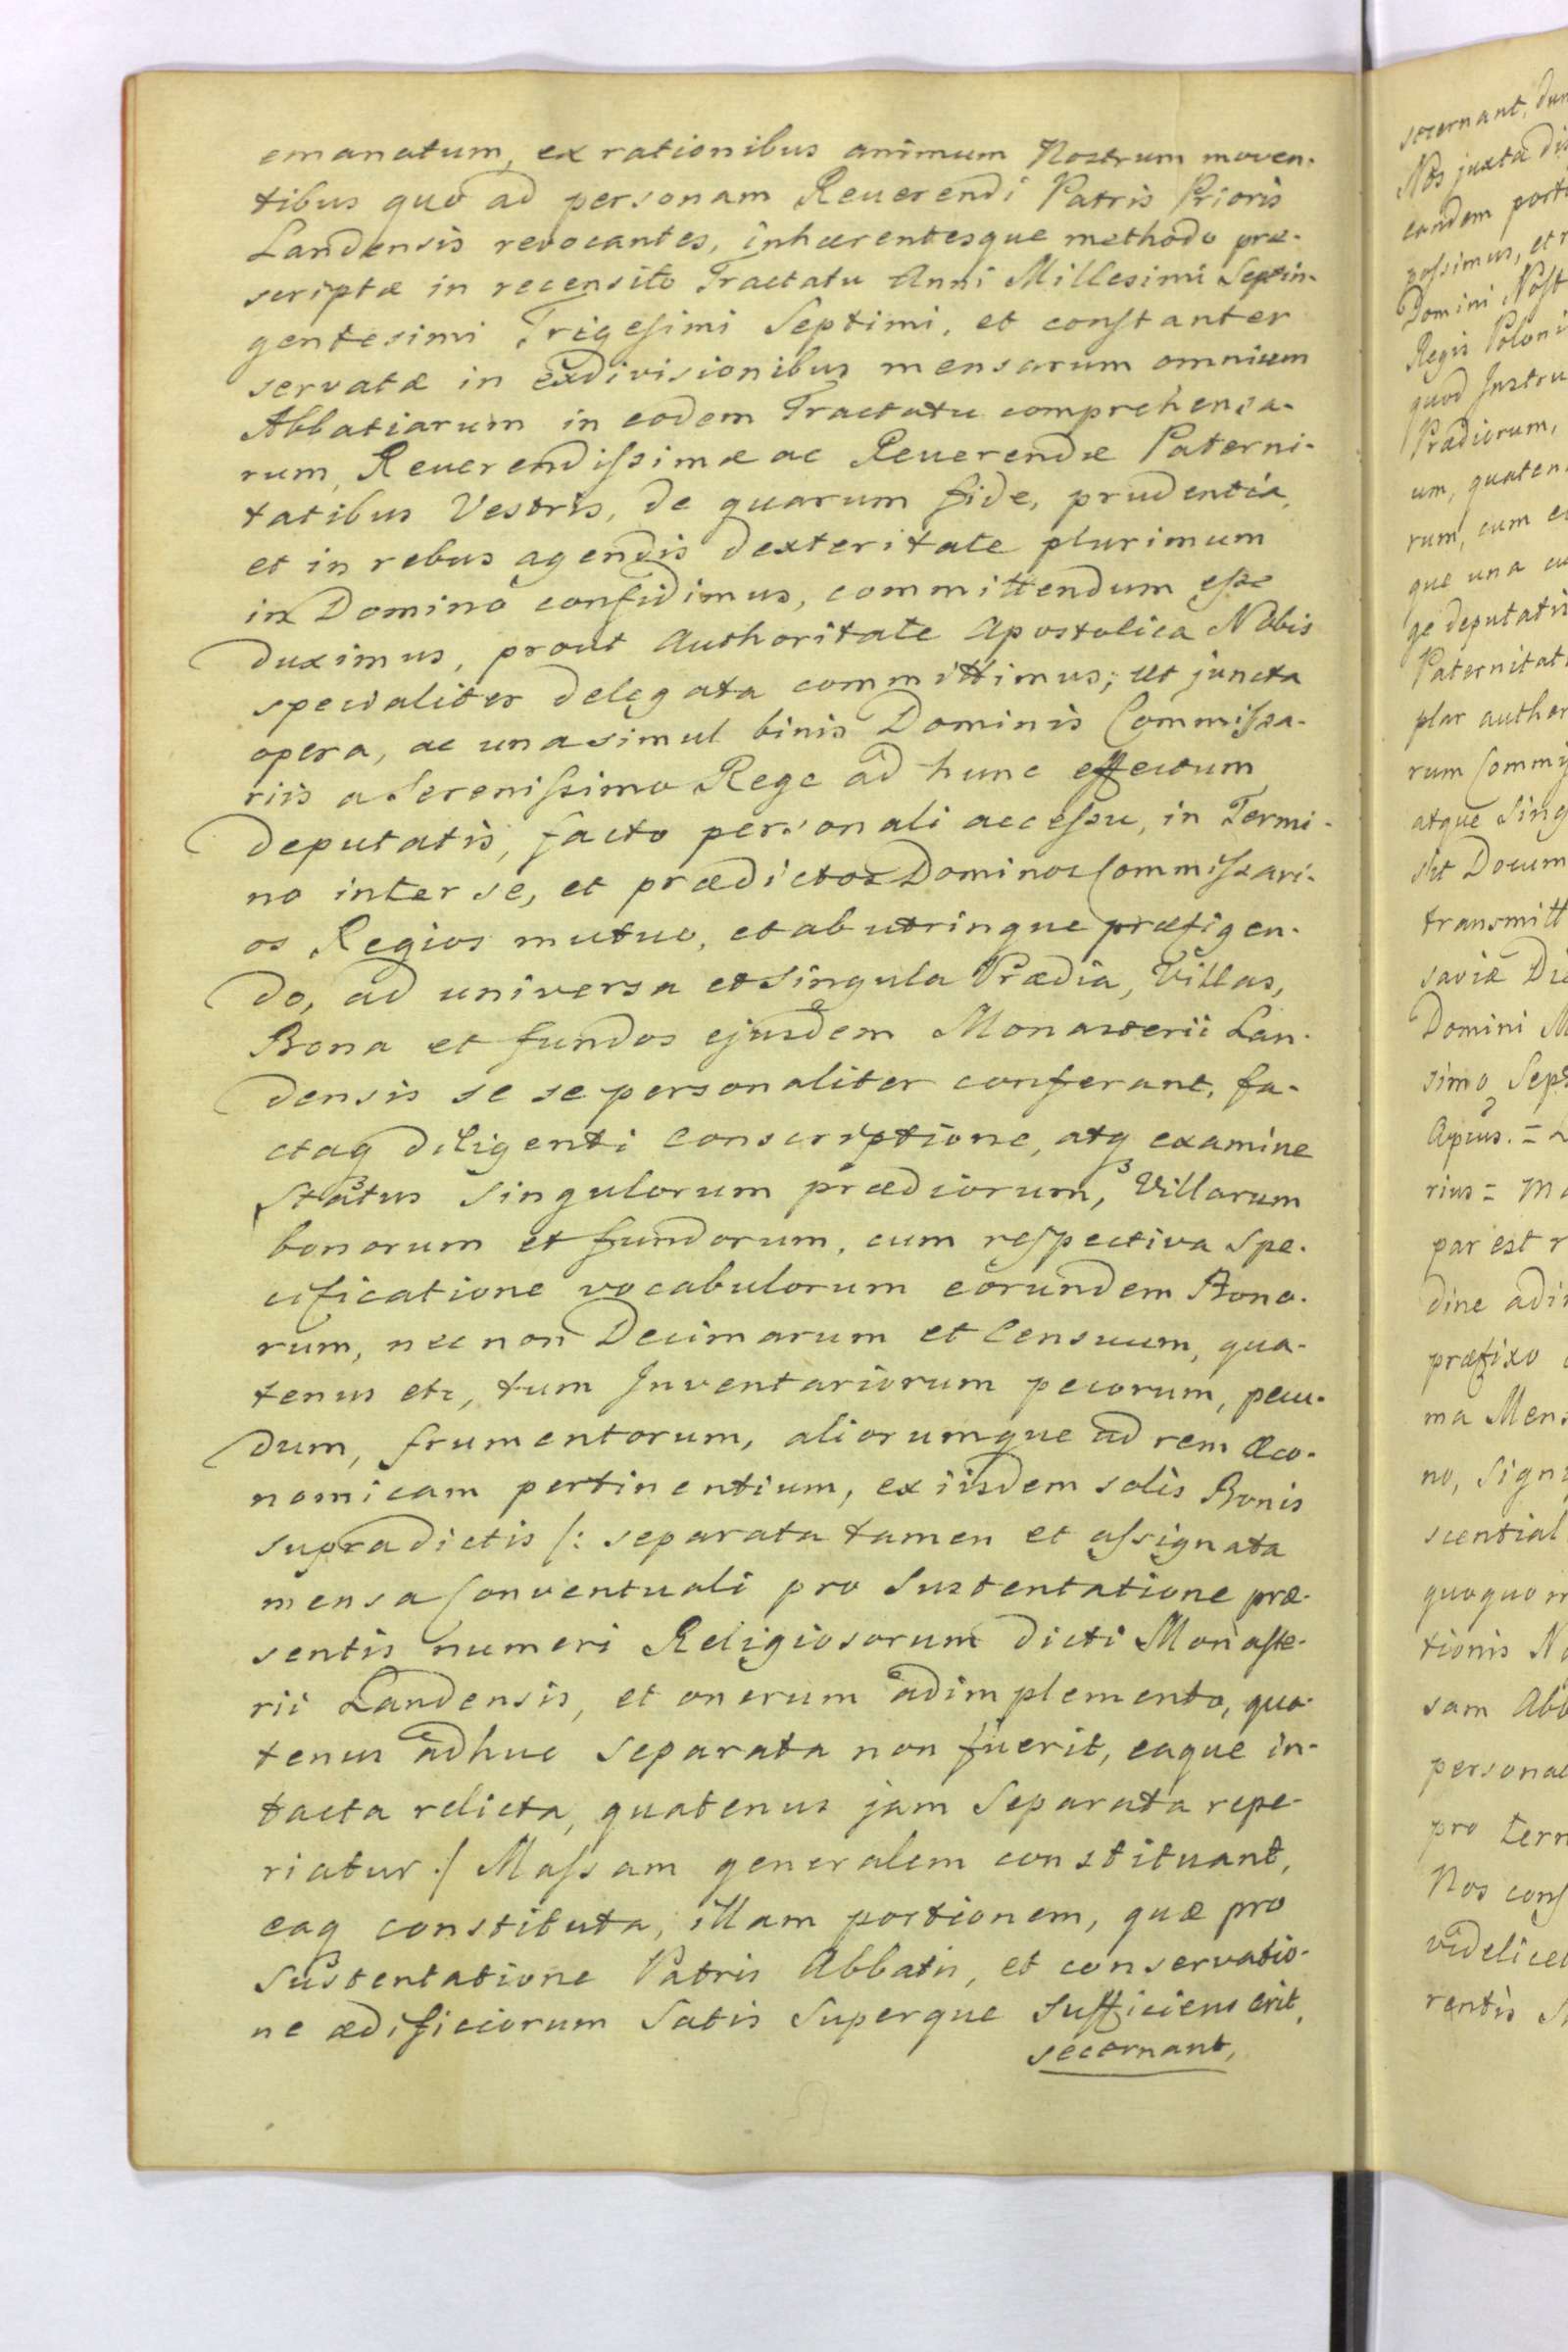 emanatum, ex rationibus animum Nostrum moven-
tibus quo ad personam Reuerendi Patris Prioris
Landensis revocantes, inhærentesque methodo præ-
scriptæ in recensito Tractatu Anni Millesimi Septin-
gentesimi Trigesimi Septimi, et constanter
servatæ in exdivisionibus mensarum omnium
Abbatiarum in eodem Tractatu comprehensa-
rum, Reuerendissimæ ac Reuerendæ Paterni-
tatibus Vestris, de quarum fide, prudentia,
et in rebus agendis dexteritate plurimum
in Domino confidimus, committendum esse
duximus, prout Authoritate Apostolica Nobis
specialiter delegata committimus; ut juncta
opera, ac unasimul binis Dominis Commissa-
riis a Serenissimo Rege ad hunc effectum
deputatis, facto personali accessu, in Termi-
no inter se, et prædictos Dominos Commissari-
os Regios mutuo, et ab utrinque præfigen-
do, ad universa et singula Prædia, Villas,
Bona et fundos ejusdem Monasterii Lan-
densis se se personaliter conferant, fa-
ctaq3 diligenti conscriptione, atq3 examine
Status singulorum prædiorum, Villarum
bonorum et fundorum, cum respectiva spe-
cificatione vocabulorum eorundem Bono-
rum, nec non Decimarum et Censuum, qua-
tenus etc, tum Inventariorum pecorum, pecu-
dum, frumentorum, aliorumque ad rem æco-
nomicam pertinentium, ex iisdem solis Bonis
supradictis /: separata tamen et assignata
mensa Conventuali pro Sustentatione præ-
sentis numeri Religiosorum dicti Monaste-
rii Landensis, et onerum adimplemento, qua-
tenus adhuc separata non fuerit, eaque in-
tacta relicta, quatenus jam Separata repe-
riatur :/ Massam generalem constituant,
eaq3 constituta, illam portionem, quæ pro
Sustentatione Patris Abbatis, et conservatio-
ne ædificiorum Satis Superque Sufficiens erit,
secernant,
secernant, dum
Nos juxta dis
eandem porti
possimus, et r
Domini Nost
Regis Poloni
quod Instru
Prædiorum,
um, quaten
rum, cum e
que una cu
ge deputatis
Paternitati
plar author
rum Commis
atque Sing
sit Docum
transmitt
saviæ Die
Domini M
simo Sept
rius = Ma
par est r
dine adi
præfixo
ma Mens
no, Signi
scential
quoquo m
tionis No
sam Abb
personal
pro term
Nos cons
videlicet
rentis